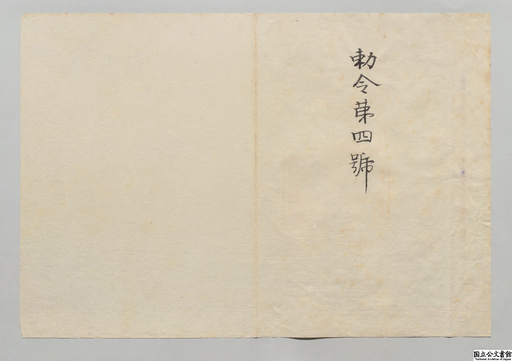 勅令第四號
国立公文書館
National Archives of Japan